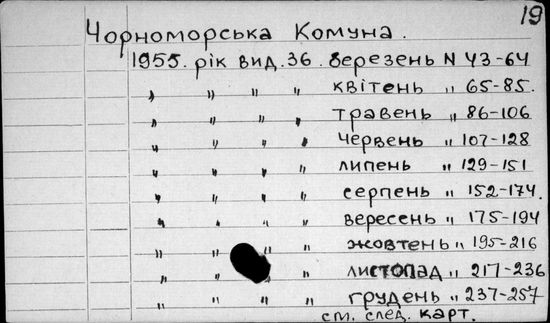 19
Чорноморська Комуна.
1955. рік вид. 36. березень N 43-64
" " " " квітень " 65-85.
" " " " травень " 86-106
" " " " червень " 107-128
" " " " липень " 129-151
" " " " серпень " 152-174.
" " " " вересень " 175-194
" " " " жовтень " 195-216
" " " листопад " 217-236
" " " " грудень " 237-257
см. след. карт.